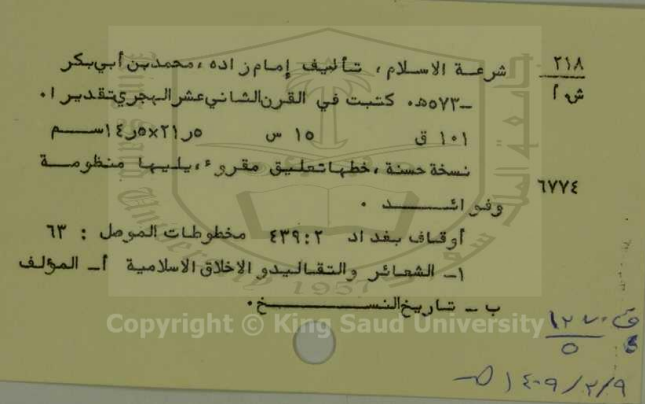 ٢١٨ شرعـة الاسـلام ، تـأليف إمام زاده ،محمدبن أبي بكر
ش٠أ ـ٥٧٣هـ٠ كتبت في القرن الثاني عشر الهجري تقديرا٠
١٠١ ق ١٥ س ٥ر٢١×٥ر١٤ســم
٦٧٧٤ نسخة حسنة ،خطها تعليق مقروء ،يليها منظومـة
وفوائــــد ٠
أوقاف بغداد ٤٣٩:٢ مخطوطات الموصل : ٦٣
١ـ الشعائر والتقاليد و الاخلاق الاسلامية أـ المؤلف
ب ـ تاريخ النســــــخ٠
Copyright © King Saud University
١٤٠٩/٢/٩